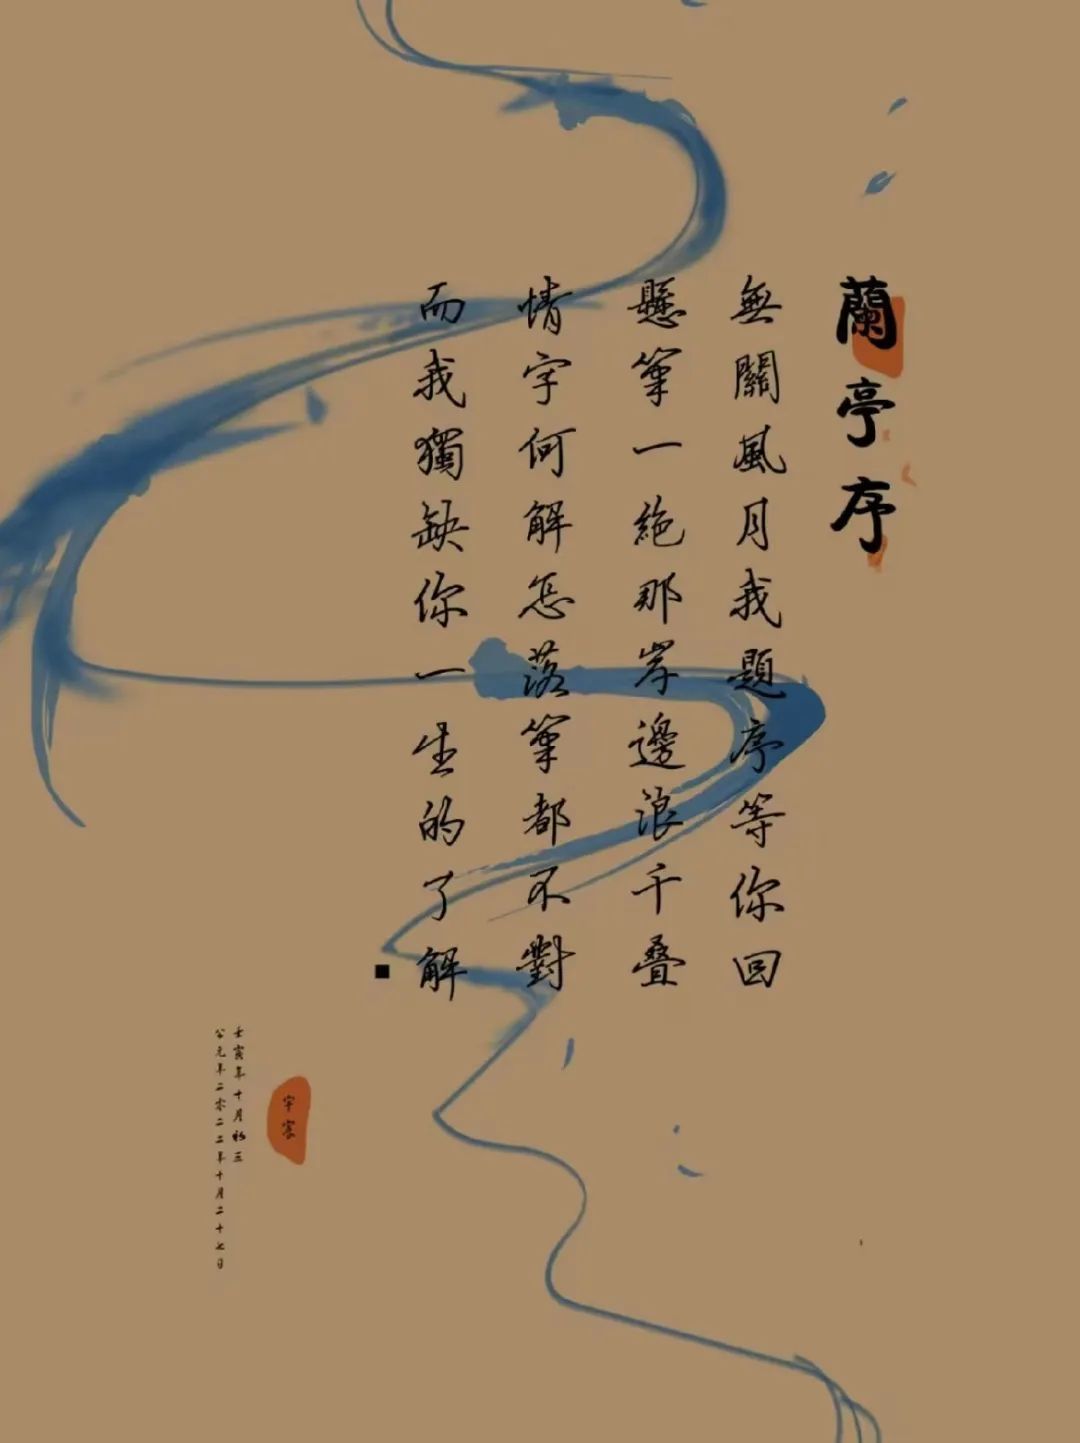 蘭亭序
無關風月我題序等你回
懸筆一絶那岸邊浪千叠
情字何解怎落筆都不對
而我獨缺你一生的了解
壬寅年十月初三
公元年二零二二年十月二十七日